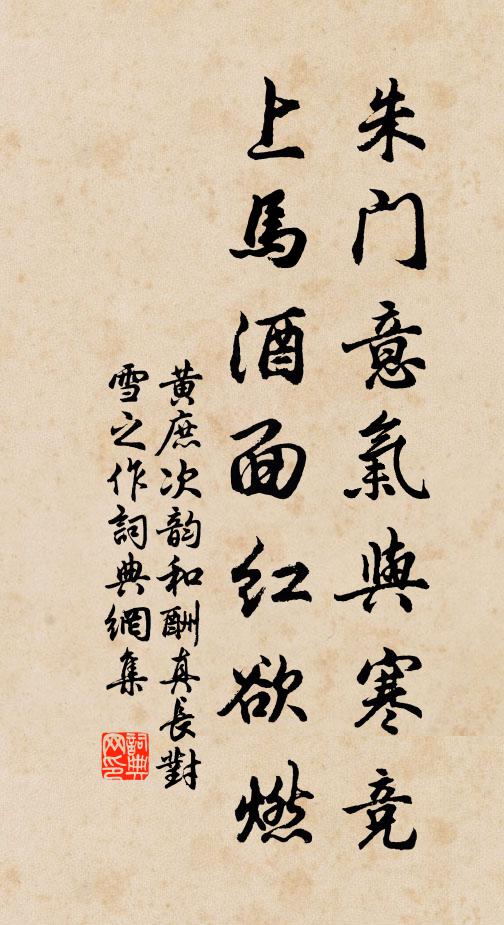 朱門意氣與寒竞
上馬酒面紅欲燃
黄庶次韵和酬真長對
雪之作詞典網集
詞典
网印